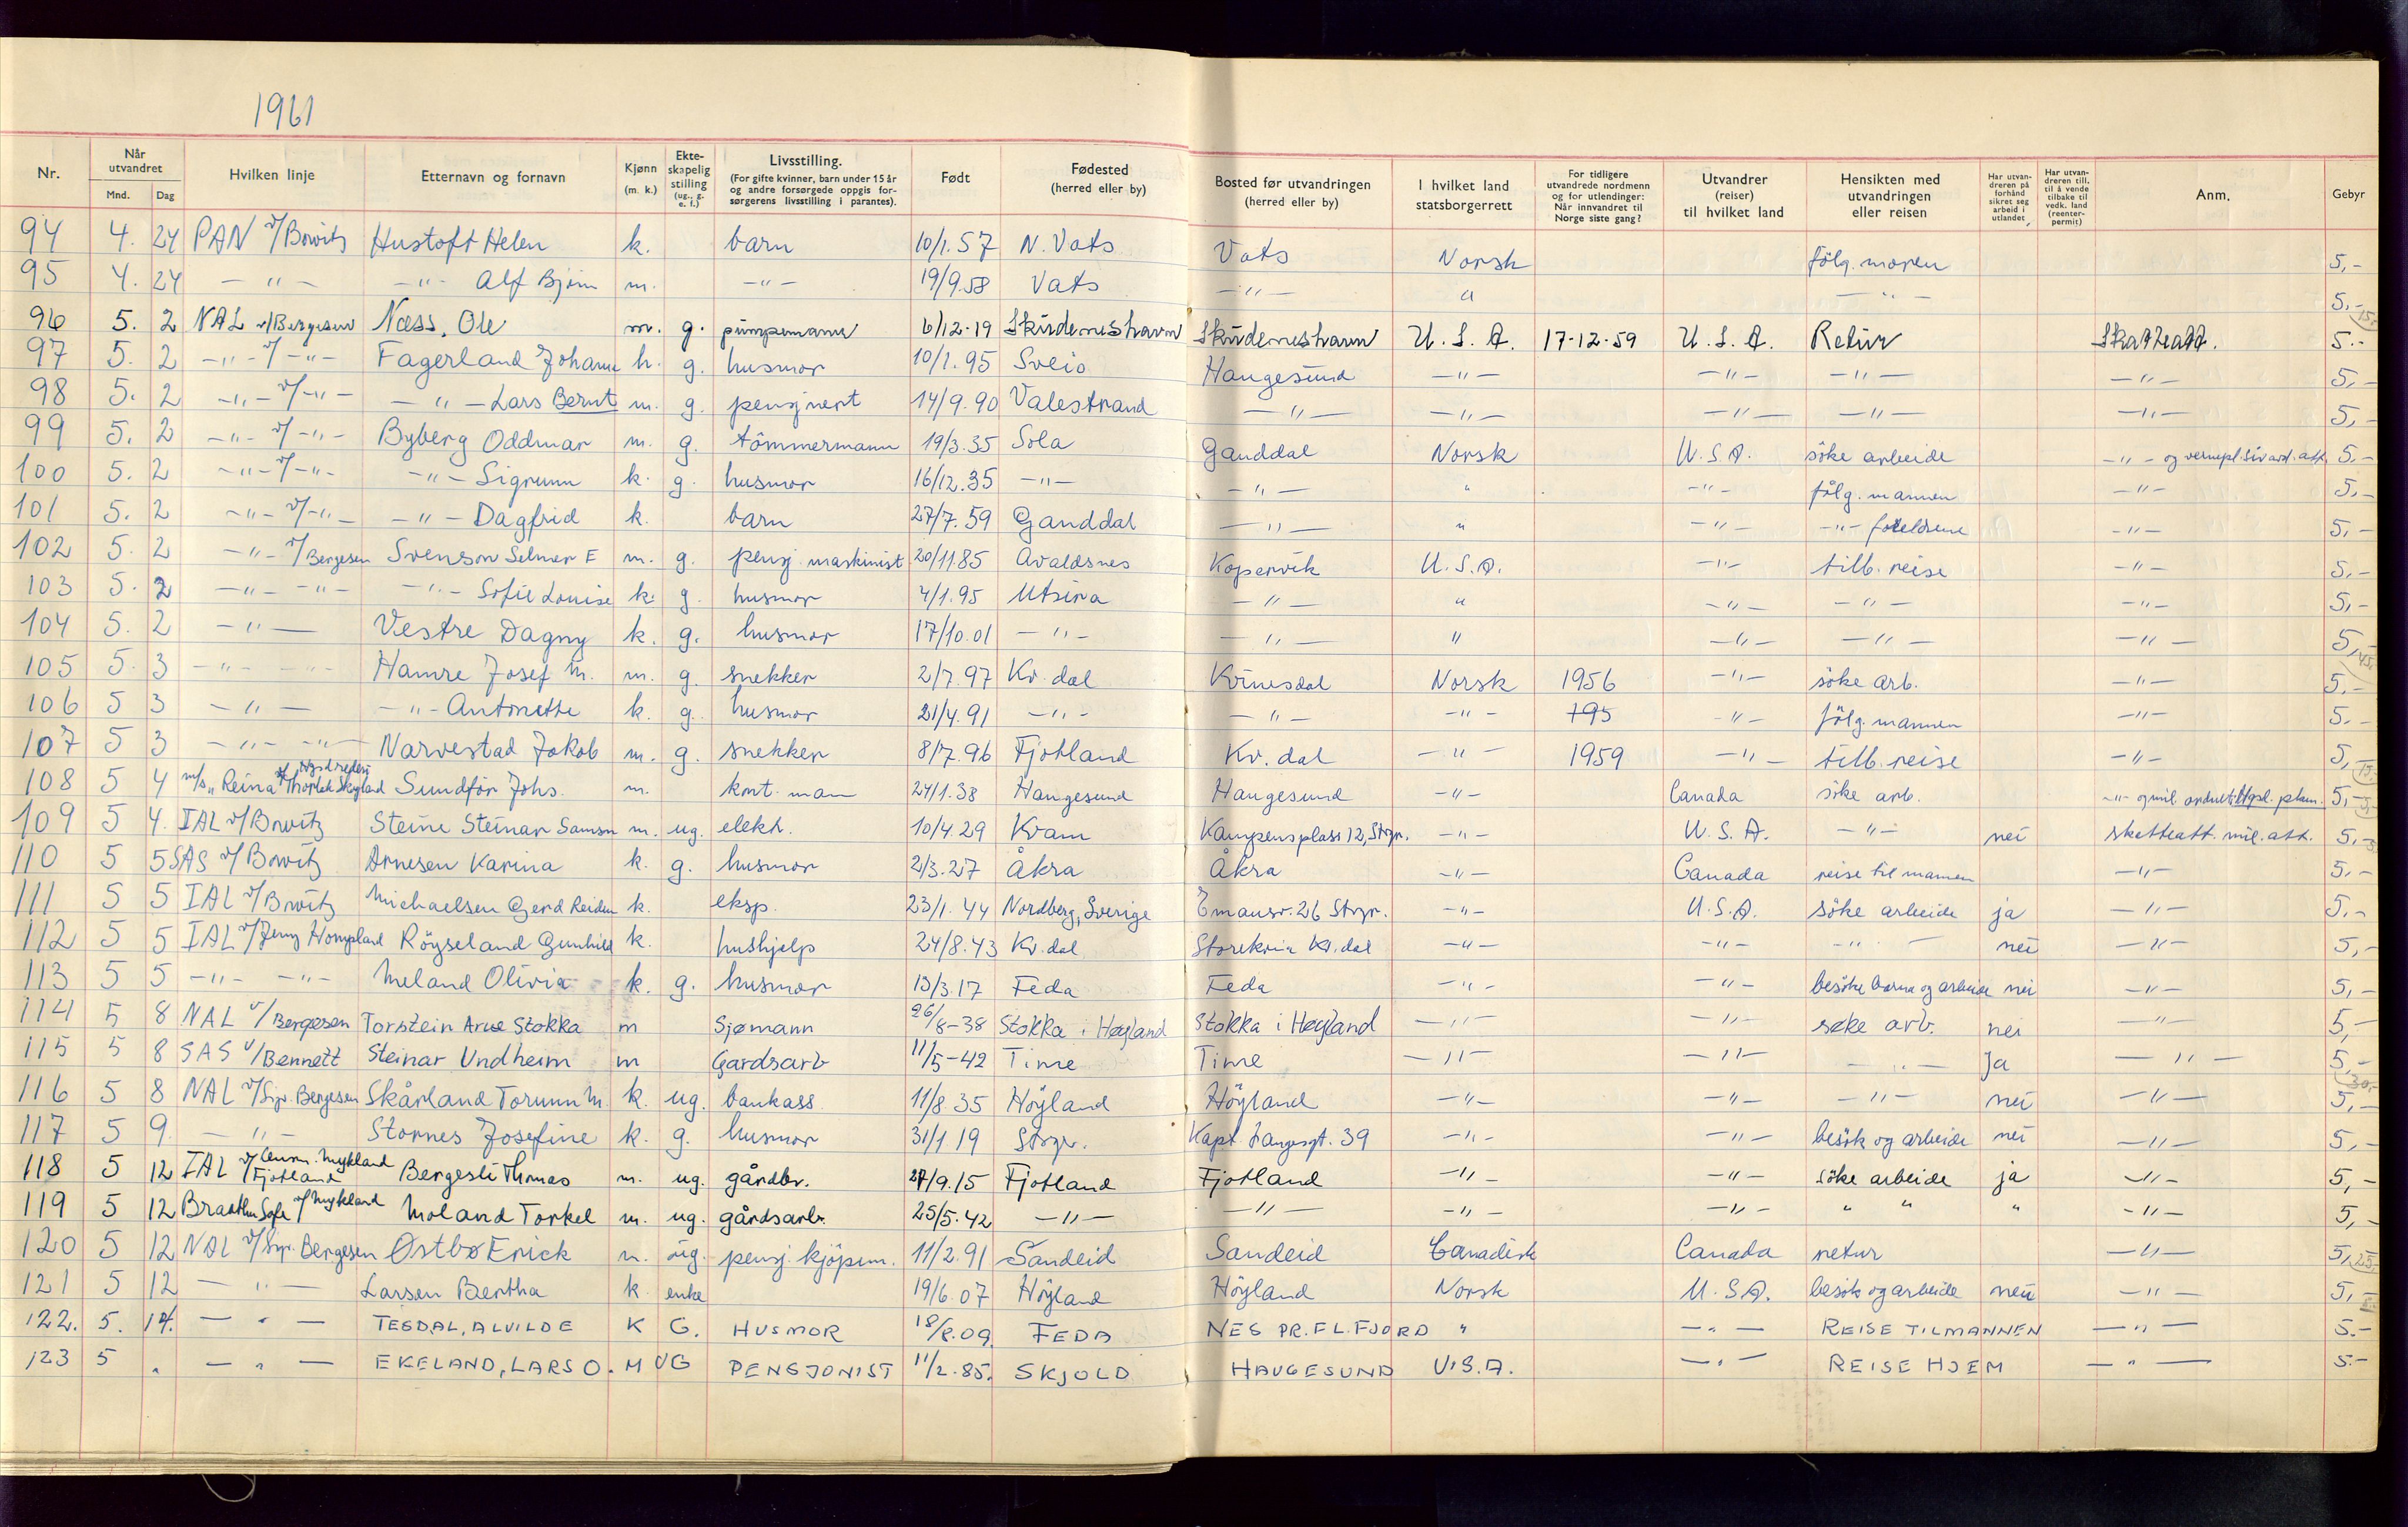 1961
Nr. Når utvandret Mnd. Dag Hvilken linje Etternavn og fornavn Kjønn (m. k.) Ekteskapelig stilling (ug., g. e. f.) Livsstilling. (For gifte kvinner, barn under 15 år og andre forsørgede oppgis forsørgerens livsstilling i parantes). Født Fødested (herred eller by) Bosted før utvandringen (herred eller by) I hvilket land statsborgerrett For tidligere utvandrede nordmenn og for utlendinger: Når innvandret til Norge siste gang? Utvandrer (reiser) til hvilket land Hensikten med utvandringen eller reisen Har utvandreren på forhånd sikret seg arbeid i utlandet Har utvandreren till. til å vende tilbake til vedk. land (reenterpermit) Anm. Gebyr
94 4. 24 PAN v/Bowitz Hustoft Helen k. barn 10/1.57 N. Vats Vats Norsk følg. moren 5,-
95 4. 24 -"- -"- Alf Bjørn m. -"- 19/9.58 Vats -"- " -"- 5,-
96 5. 2 NAL v/Bergesen Næss, Ole m. g. pumpemann 6/12-19 Skudeneshavn Skudeneshavn U.S.A. 17-12-59 U.S.A. Retur Skatteatt. 5.-
97 5. 2 -"- v/-"- Fagerland Johanne k. g. husmor 10/1.95 Sveio Haugesund -"- -"- -"- -"- 5,-
98 5. 2 -"- v/-"- -"- Lars Bernt m. g. pensjonert 14/9.90 Valestrand -"- -"- -"- -"- -"- 5,-
99 5. 2 -"- v/-"- Byberg Oddmar m. g. tömmermann 19/3.35 Sola Ganddal Norsk U.S.A. söke arbeide -"- og vernepl. siv. ard. att. 5,-
100 5. 2 -"- v/-"- -"- Sigrunn k. g. husmor 16/12.35 -"- -"- " -"- følg. mannen -"- 5,-
101 5. 2 -"- v/-"- -"- Dagfrid k. barn 27/7.59 Ganddal -"- " -"- -"- foreldrene -"- 5,-
102 5. 2 -"- v/Bergesen Svenson Selmer E m. g. pensj. maskinist 20/11.85 Avaldsnes Kopervik U.S.A. -"- tilb. reise -"- 5,-
103 5. 2 -"- -"- -"- Sofie Louise k. g. husmor 4/1.95 Utsira -"- " -"- -"- -"- 5,-
104 5. 2 -"- Vestre Dagny k. g. husmor 17/10.01 -"- -"- " -"- -"- -"- 5,-
105 5. 3 -"- -"- Hamre Josef M. m. g. snekker 2/7.97 Kv. dal Kvinesdal Norsk 1956 -"- söke arb. -"- 5,-
106 5 3 -"- -"- Antonette k. g. husmor 21/4.91 -"- -"- -"- 195 -"- følg. mannen -"- 5.-
107 5 3 -"- -"- Narvestad Jakob m. g. snekker 8/7.96 Fjotland Kv. dal -"- 1959 -"- tilb. reise -"- 5,-
108 5 4 m/s "Reina" Sundfør Johs. m. kont. mann 24/1.38 Haugesund Haugesund -"- Canada söke arb. -"- 5,-
109 5 4. IAL v/Bowitz Steine Steinar Samson m. ug. elekt. 10/4.29 Kvam Kampensplass 12, Stvgr. -"- U.S.A. -"- nei skatteatt. mil. att. 5,-
110 5 5 SAS v/Bowitz Arnesen Karina k. g. husmor 2/3.27 Åkra Åkra -"- Canada reise til mannen -"- 5,-
111 5 5 IAL v/Bowitz Michaelsen Gerd Reidun k. eksp. 23/1.44 Nordberg, Sverige Emausv. 26 Stvgr. -"- U.S.A. söke arbeide ja -"- 5,-
112 5 5 IAL v/Jenny Hompland Röyseland Gunhild k. hushjelp 24/8.43 Kv. dal Storekvin Kv. dal -"- -"- -"- nei -"- 5,-
113 5 5 -"- -"- Meland Olivia k. g. husmor 13/3.17 Feda Feda -"- -"- besöke barna og arbeide nei -"- 5,-
114 5 8 NAL v/Bergesen Torstein Arne Stokka m Sjømann 26/8-38 Stokka i Høyland Stokka i Høyland -"- -"- søke arb. nei -"- 5,-
115 5 8 SAS v/Bennett Steinar Undheim m Gardsarb 11/5-42 Time Time -"- -"- -"- Ja -"- 5,-
116 5 8 NAL v/Sigv. Bergesen Skårland Torunn M. k. ug. bankass. 11/8.35 Höyland Höyland -"- -"- -"- nei -"- 5,-
117 5 9. -"- Stornes Josefine k. g. husmor 31/1 19 Stvgr. Kapt. Langesgt. 39 -"- -"- besök og arbeide nei -"- 5,-
118 5 12 IAL v/Mykland Fjotland Bergesli Thomas m. ug. gårdbr. 27/9.15 Fjotland Fjotland -"- -"- söke arbeide ja -"- 5,-
119 5 12 Braathen Safe v/Mykland Moland Torkel m. ug. gårdsarb. 25/5.42 -"- -"- -"- -"- " " " -"- 5,-
120 5 12 NAL v/Sigv. Bergesen Østbø Erick m. ug. pensj. kjöpm. 11/2.91 Sandeid Sandeid Canadisk Canada retur -"- 5,-
121 5 12 -"- Larsen Bertha k. enke 19/6.07 Höyland Höyland Norsk U.S.A. besök og arbeide nei -"- 5,-
122. 5. 14. -"- TESDAL, ALVILDE K G. HUSMOR 18/8.09 FEDA NES PR. FL. FJORD " -"- REISE TIL MANNEN -"- 5.-
123 5 " -"- EKELAND, LARS O. M UG PENSJONIST 11/2.85. SKJOLD HAUGESUND U.S.A. -"- REISE HJEM -"- 5.-